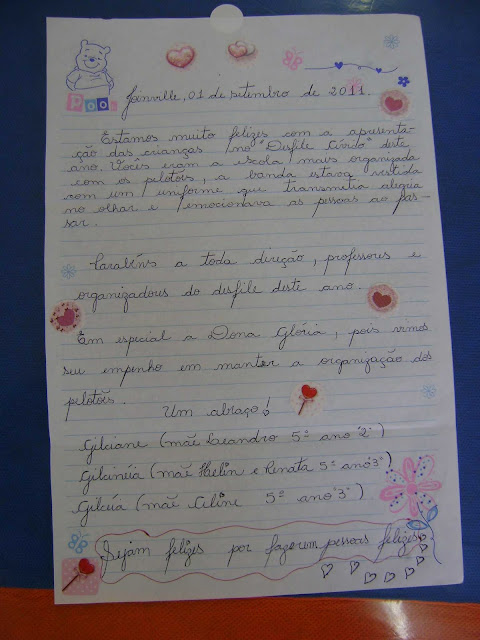 Poo
Joinville, 01 de setembro de 2011.
Estamos muito felizes com a apresenta-
ção das crianças no "Desfile Cívico" deste
ano. Vocês eram a escola mais organizada
com os pelotões, a banda estava vestida
com um uniforme que transmetia alegria
no olhar e emocionava as pessoas ao pas-
sar.
Parabéns a toda direção, professores e
organizadores do desfile deste ano.
Em especial a Dona Glória, pois vimos
seu empenho em manter a organização dos
pelotões.
Um abraço!
Gilciane (mãe Leandro 5º ano "2")
Gilcinéia (mãe e Renata 5º ano "3")
Gilcéia (mãe 5º ano "3")
Sejam felizes por fazerem pessoas felizes